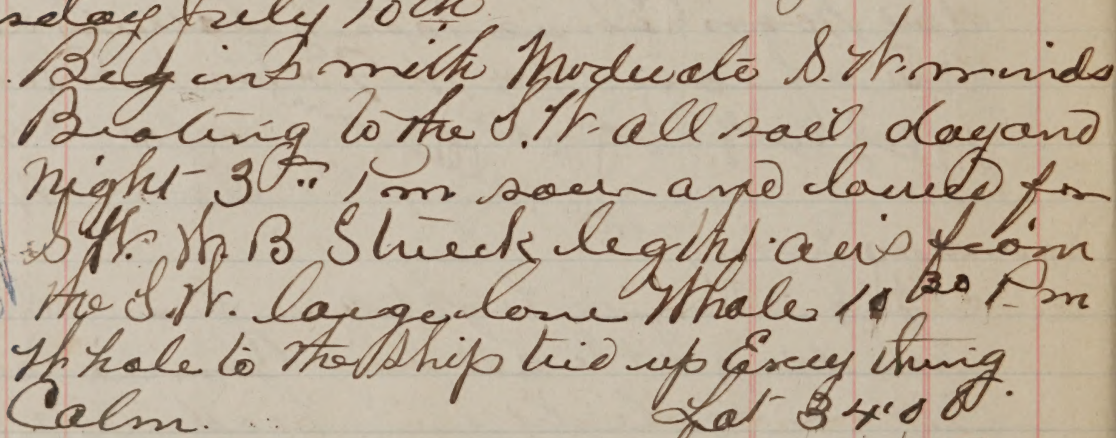 sday July 10th
Begins with Moderate S.W. winds
Beating to the S.W. all sail day and
Night 3 P.m saw and lowed for
S W. W B Struck leght airs from
the S.W. large lone Whale 10 30 P m
Whale to the ship tied up Every thing
Calm. Lat 34.00